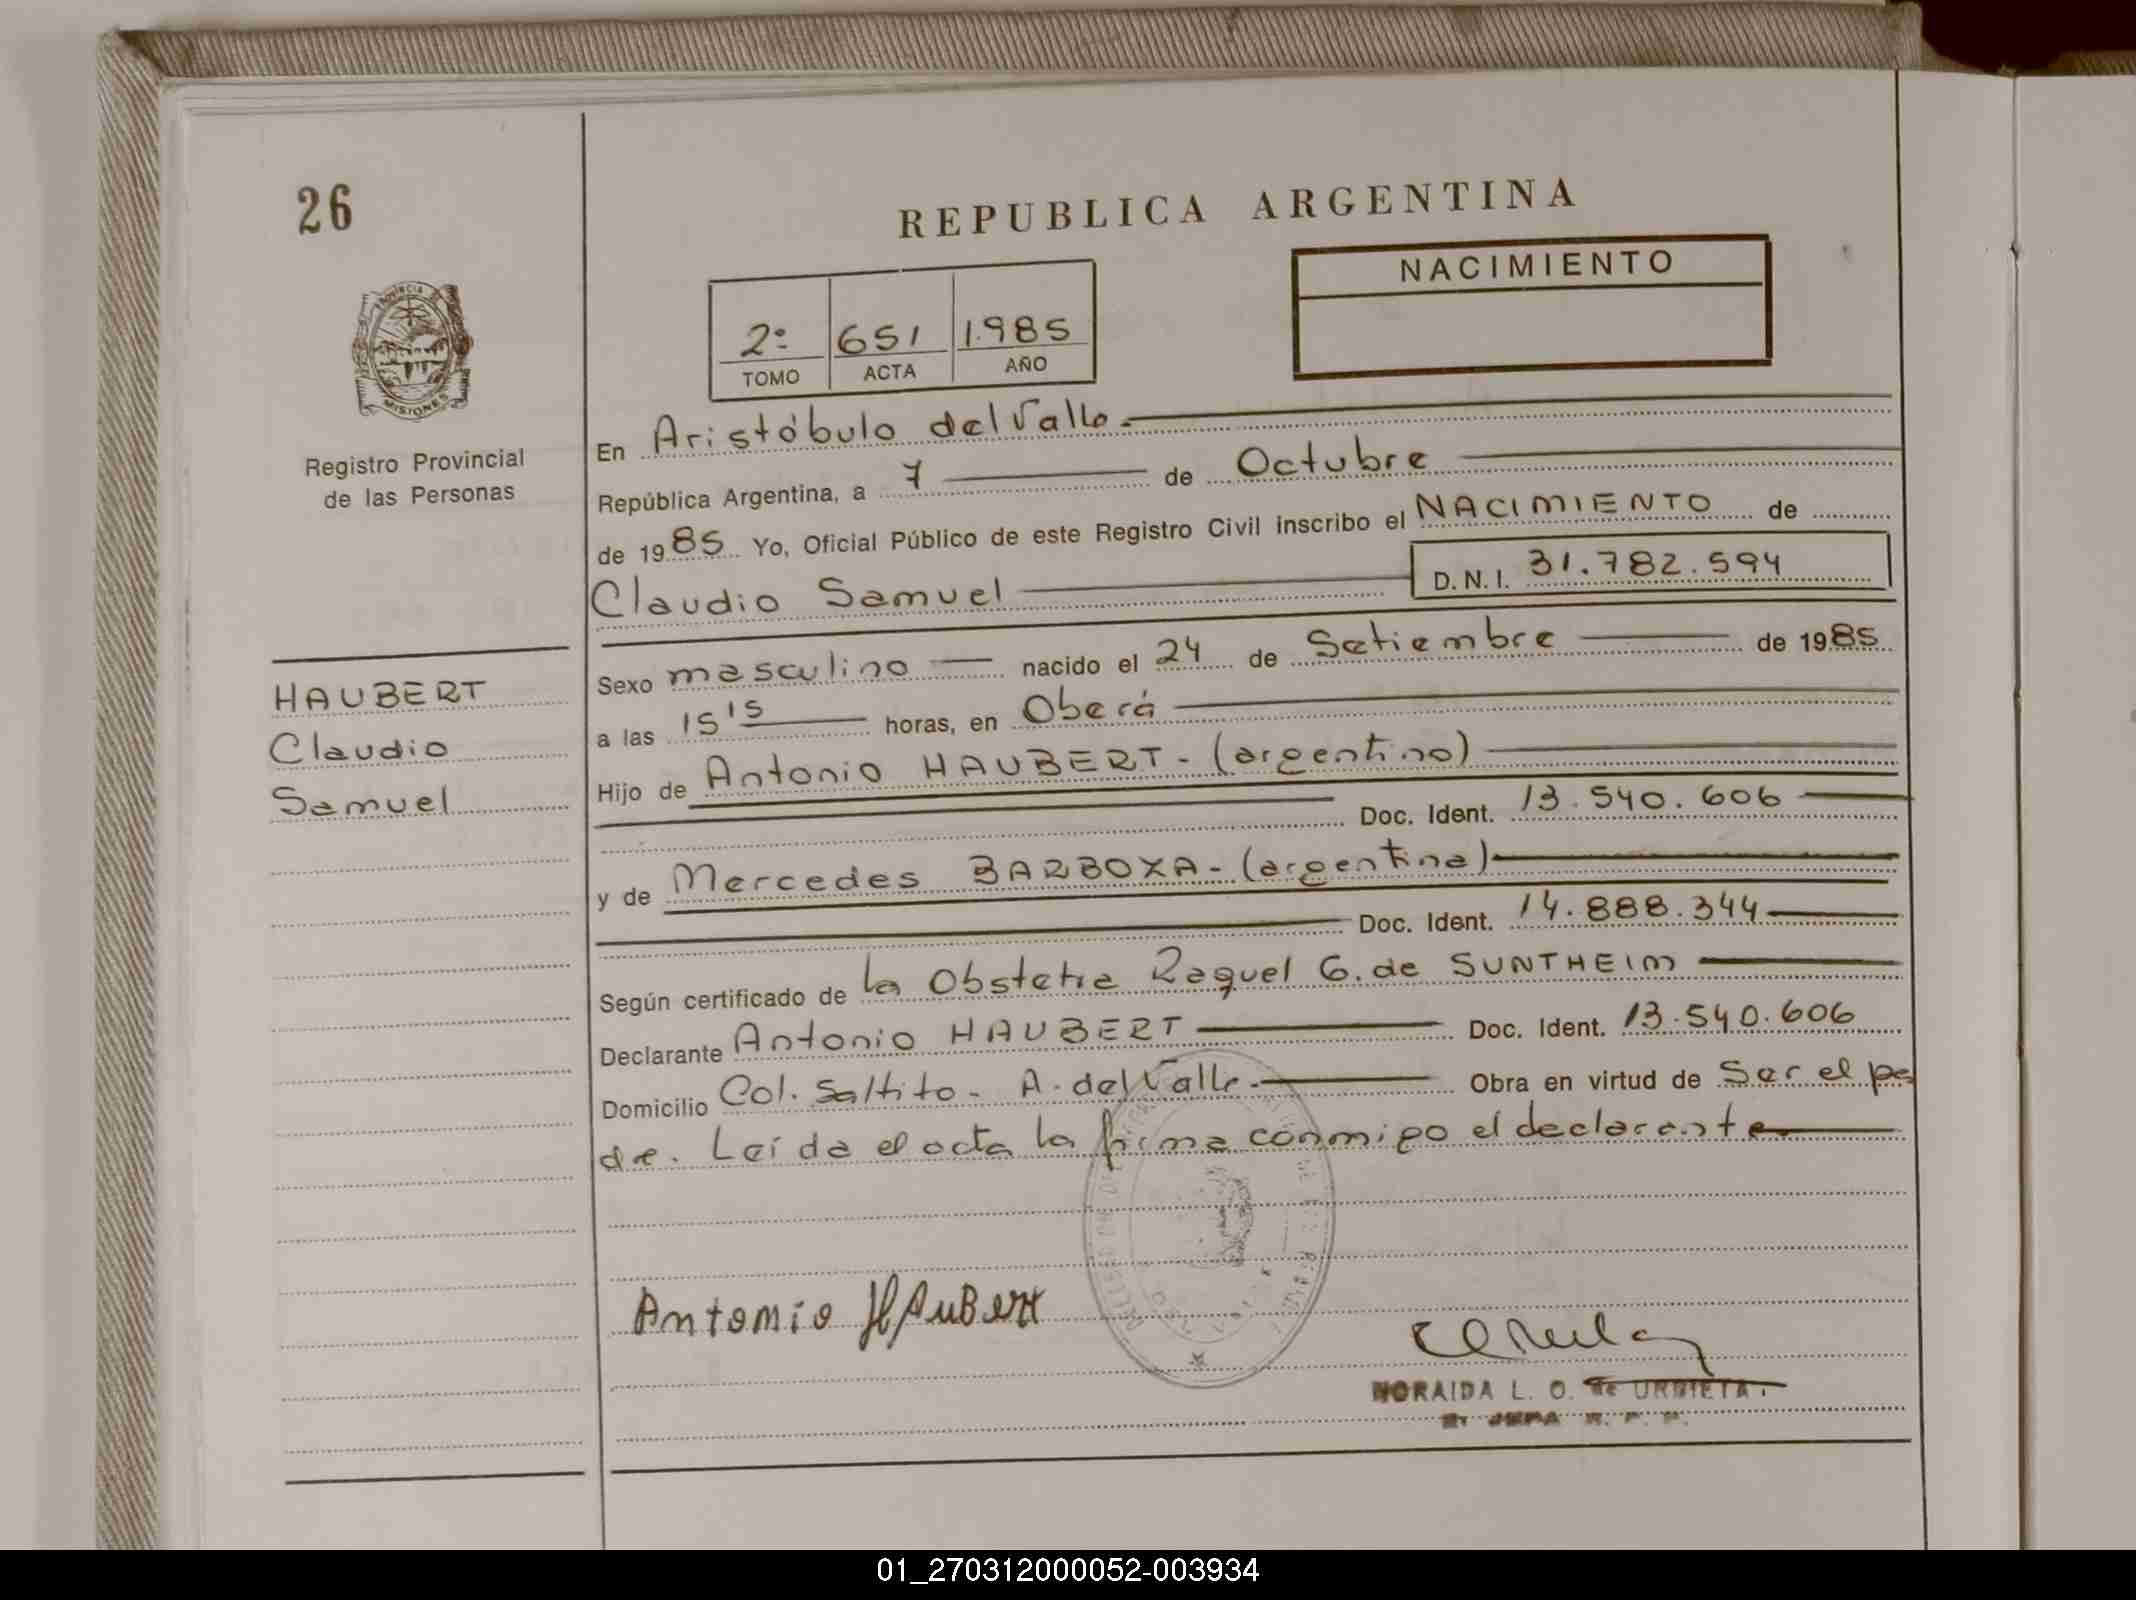 26
REPUBLICA ARGENTINA
NACIMIENTO
2º 651 1.985
TOMO ACTA AÑO
PROVINCIA DE MISIONES
Registro Provincial
de las Personas
En Aristóbulo del Valle.
República Argentina, a 7 de Octubre
de 1985 Yo, Oficial Público de este Registro Civil inscribo el NACIMIENTO de
Claudio Samuel D.N.I. 31.782.594
HAUBERT
Claudio
Samuel
Sexo masculino nacido el 24 de Setiembre de 1985
a las 15 15 horas, en Oberá
Hijo de Antonio HAUBERT - (argentino)
Doc. Ident. 13.540.606
y de Mercedes BARBOXA - (argentina)
Doc. Ident. 14.888.344
Según certificado de la Obstetra Raquel G. de SUNTHEIM
Declarante Antonio HAUBERT Doc. Ident. 13.540.606
Domicilio Col. Saltito - A. del Valle. Obra en virtud de Ser el pa
dre. Leída el acta la firma conmigo el declarante
Antonio HAUBert
NORAIDA L. O. de URBIETA
JEFA R. P. P.
01_270312000052-003934